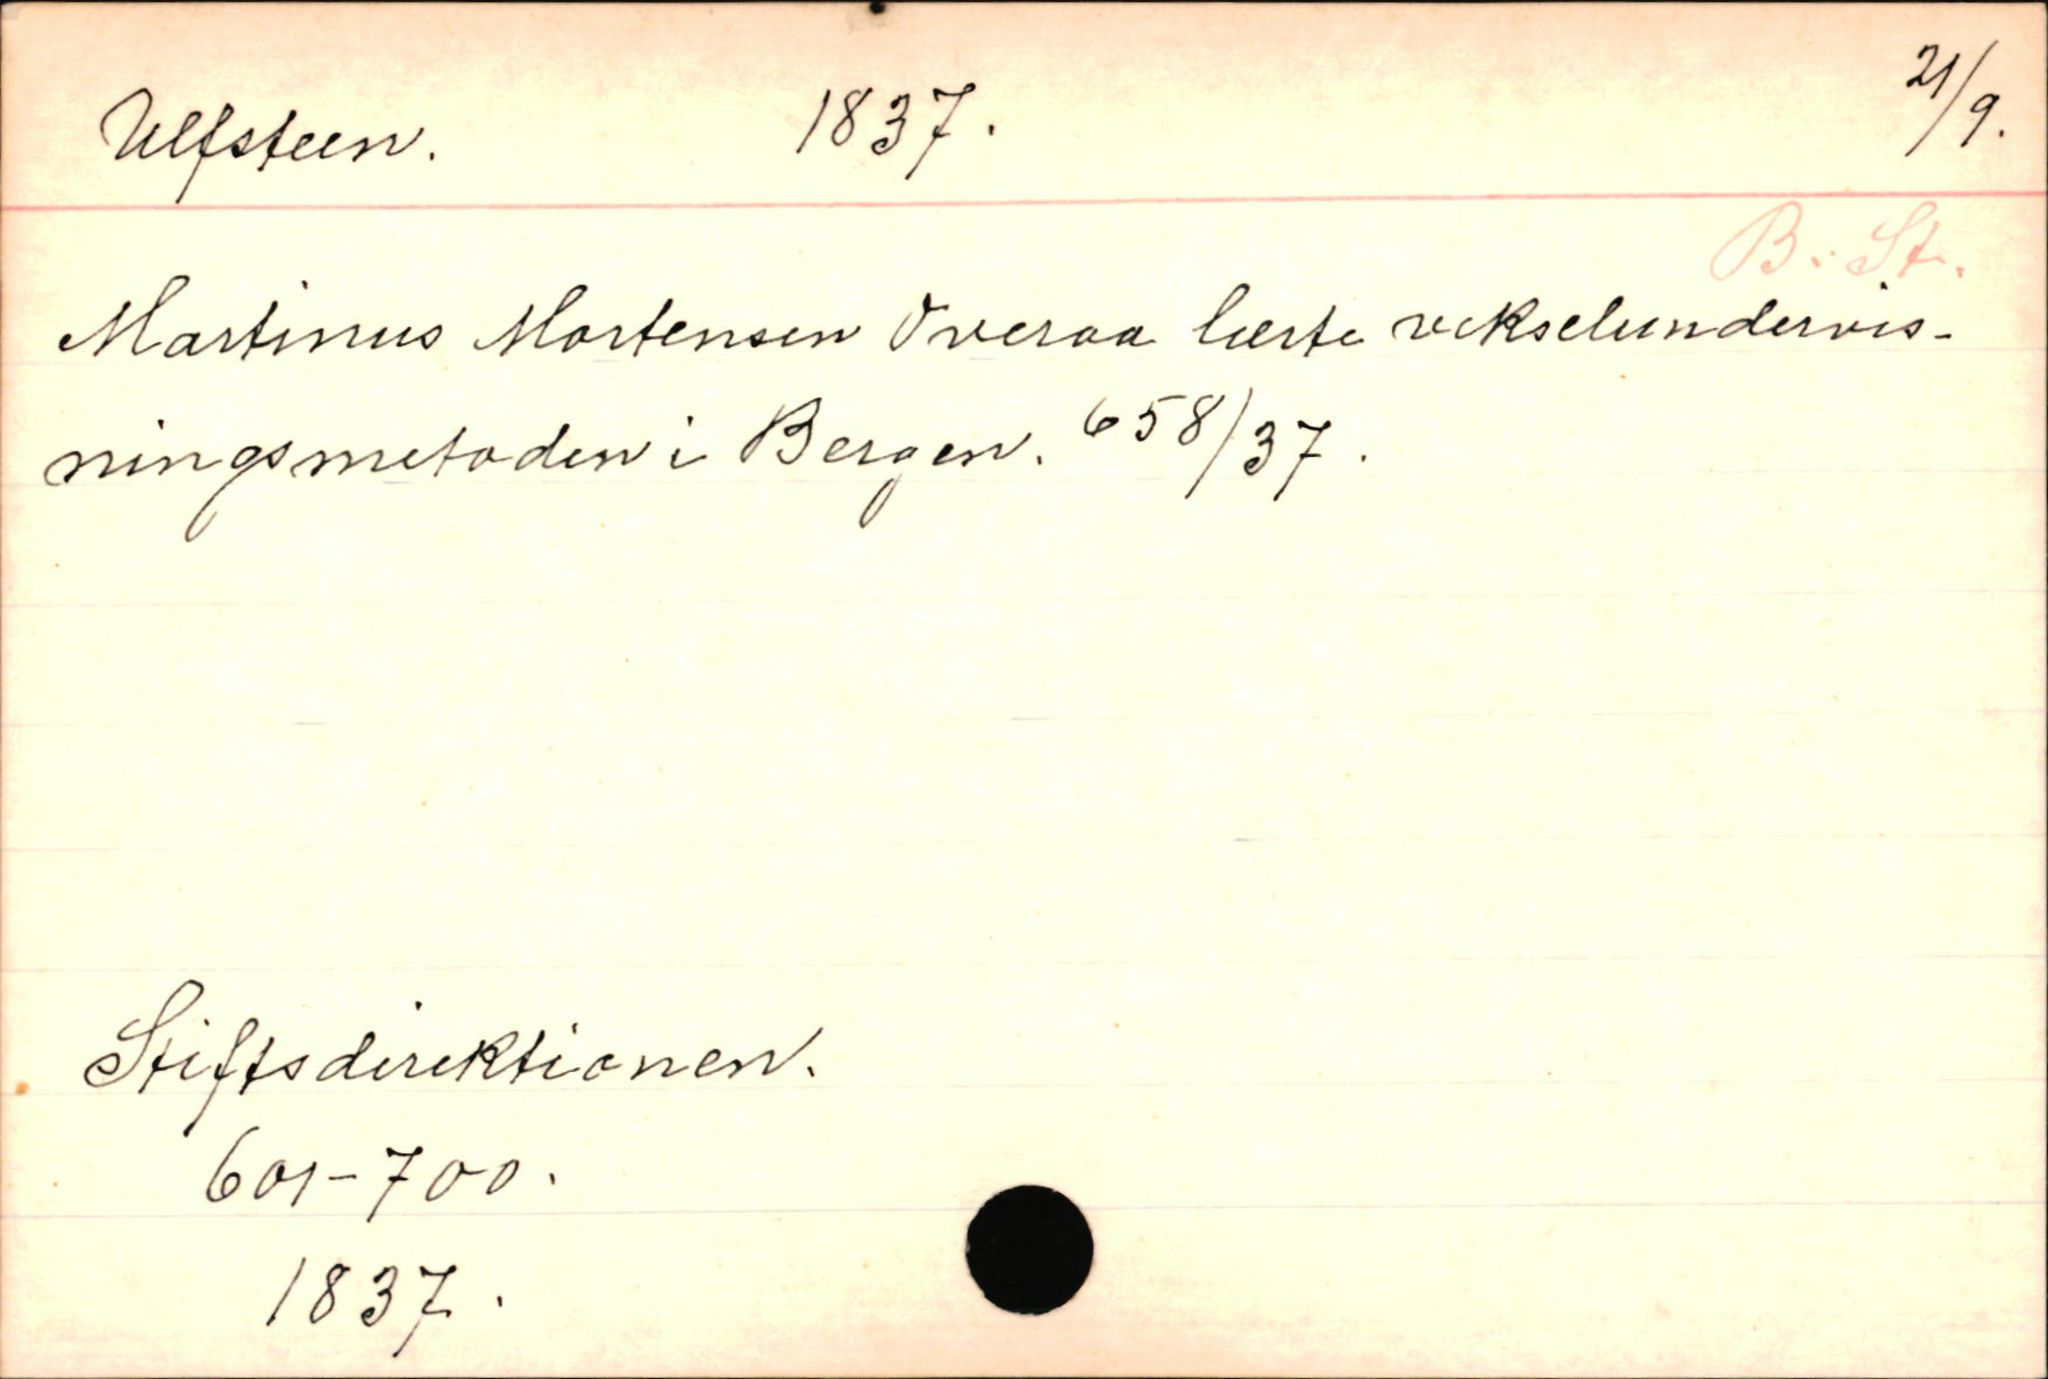 Ulfsteen. 1837. 21/9.
B. St.
Martinus Mortensen Overaa lærte vekselundervis-
ningsmetoden i Bergen. 658/37.
Stiftsdirektionen.
601-700.
1837.